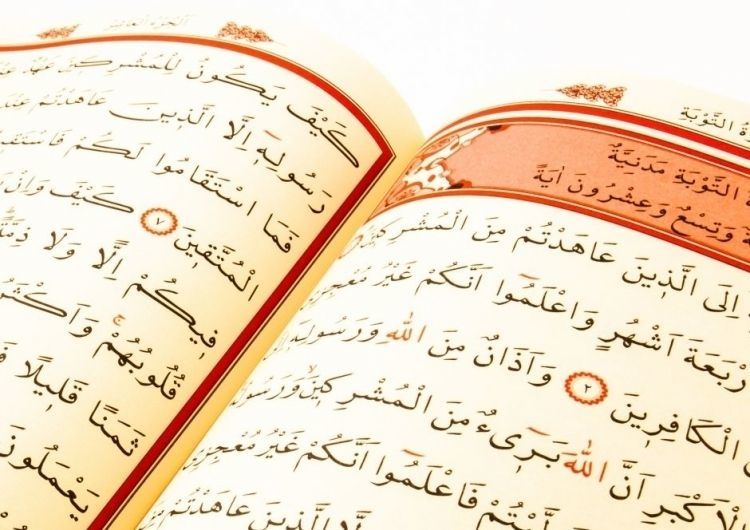 التَّوْبَةِ
التَّوْبَةِ مَدَنِيَّةٌ
وَتِسْعٌ وَعِشْرُونَ اٰيَةً
اِلَى الَّذ۪ينَ عَاهَدْتُمْ مِنَ الْمُشْرِك۪ينَ
رْبَعَةَ اَشْهُرٍ وَاعْلَمُوا اَنَّكُمْ غَيْرُ مُعْجِزِي
الْكَافِر۪ينَ ٢ وَاَذَانٌ مِنَ اللّٰهِ وَرَسُولِه۪
الْاَكْبَرِ اَنَّ اللّٰهَ بَر۪ٓيءٌ مِنَ الْمُشْرِك۪ينَ وَرَسُولُهُ
تُمْ فَاعْلَمُٓوا اَنَّكُمْ غَيْرُ مُعْجِزِي
الَّذ۪ينَ عَاهَدْتُمْ
اَلْجُزْءُ الْعَاشِرُ
كَيْفَ يَكُونُ لِلْمُشْرِك۪ينَ عَهْدٌ عِنْدَ
رَسُولِه۪ٓ اِلَّا الَّذ۪ينَ عَاهَدْتُمْ عِنْدَ
فَمَا اسْتَقَامُوا لَكُمْ فَاسْتَق۪
الْمُتَّق۪ينَ ٧ كَيْفَ وَاِنْ
ف۪يكُمْ اِلًّا وَلَا ذِمَّةً
قُلُوبُهُمْ وَاَكْثَرُ
ثَمَنًا قَل۪يلًا
يَعْمَلُونَ